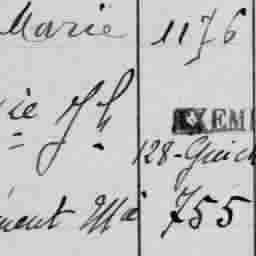 Marie 1176
ie J
EXEM
128-Guich
ment Ma 755